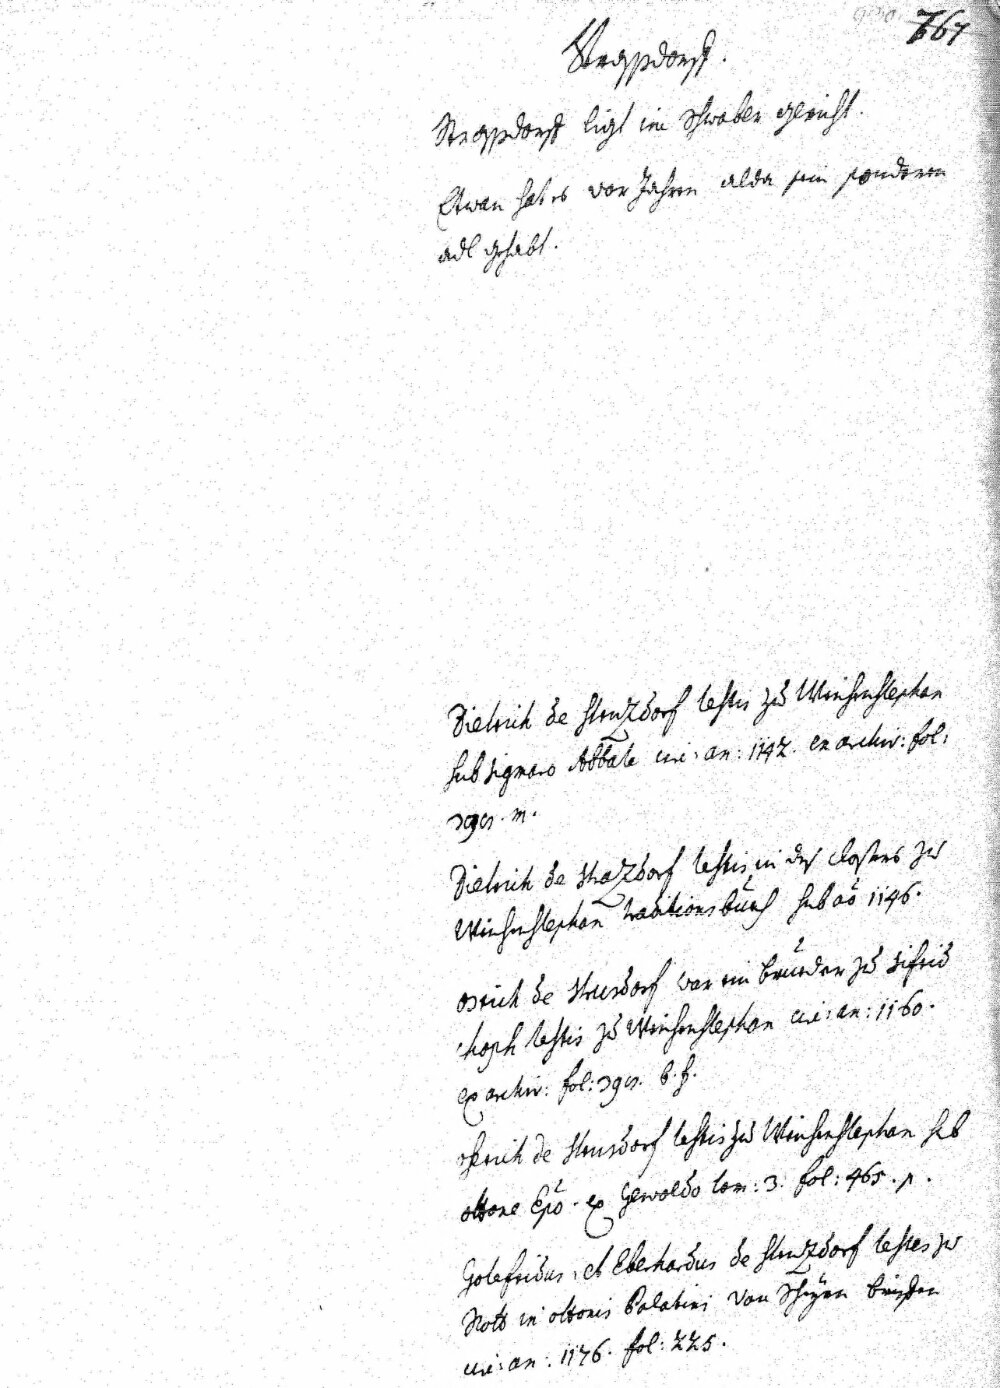 767
Stragsdorff.
Stragsdorff ligt im Schwaber gericht.
Etwan hat es vor Jahren alda sein sonderen
adl gehabt.
Dietrich de Struzdorf testis zu Weihenstephan
sub Sigmaro Abbate circ: an: 1147. ex archiv: fol:
m.
Dietrich de Strazdorf testis in des closters zu
Weihenstephan traditionsbuch sub ao 1146.
de Strusdorf war ein brueder zu Sifrid
testis zu Weihenstephan circ: an: 1160.
ex archiv: fol: b. f.
de Strusdorf testis zu Weihenstephan sub
ottone Epo. ex Gewoldo tom: 3. fol: 465. p.
Gotefridus, et Eberhardus de Struzdorf testes zu
Rott in ottonis Palatini von Scheyrn
circ: an: 1176. fol: 225.